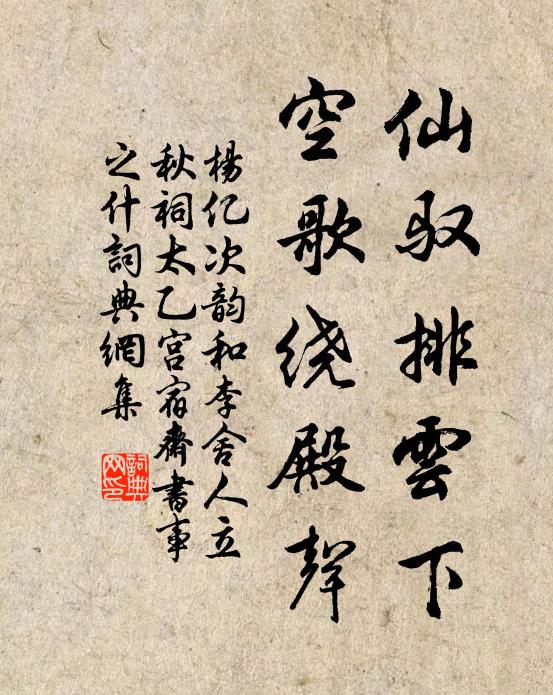 仙驭排雲下
空歌绕殿聲
楊亿次韵和李舍人立
秋祠太乙宫宿齋書事
之什詞典網集
詞典
网印